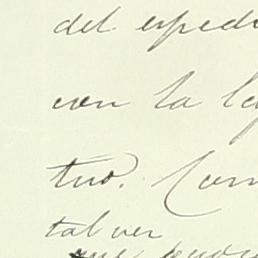 del espedi
con la le
tuo. Com
tal vez
que